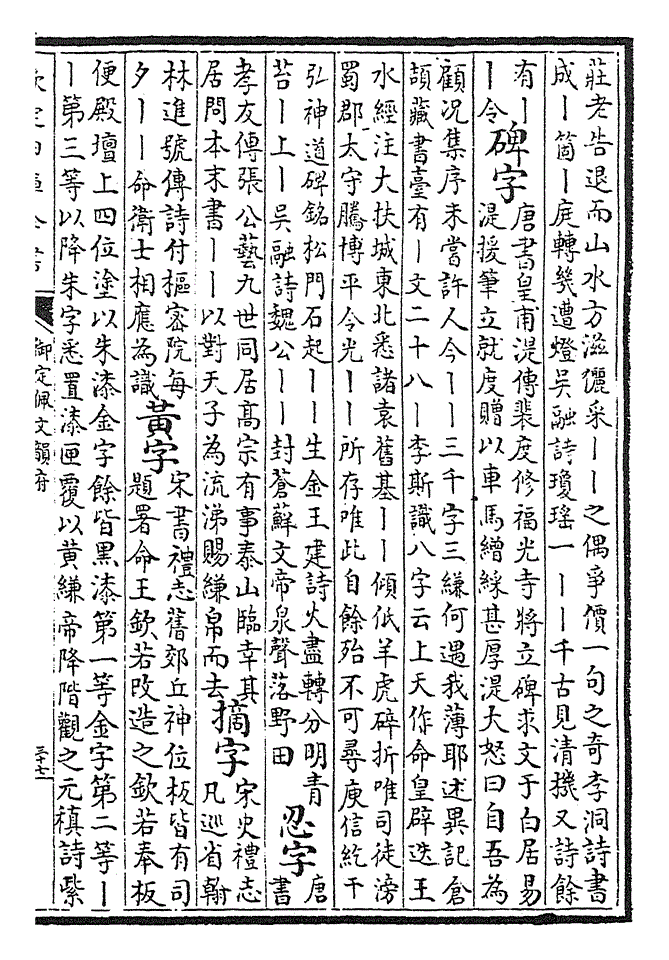 莊老告退而山水方滋儷采丨丨之偶爭價一句之奇李洞詩書
成丨箇丨庭轉幾遭燈吳融詩瓊瑤一丨丨千古見清機又詩餘
有丨
丨令
碑字
唐書皇甫湜傳裴度修福光寺將立碑求文于白居易
湜援筆立就度贈以車馬繒綵甚厚湜大怒曰自吾為
顧况集序未嘗許人今丨丨三千字三縑何遇我薄耶述異記倉
頡藏書臺有丨文二十八丨李斯識八字云上天作命皇辟迭王
水經注大扶城東北悉諸袁舊基丨丨傾低羊虎碎折唯司徒滂
蜀郡太守騰博平令光丨丨所存唯此自餘殆不可尋庾信紇干
弘神道碑銘松門石起丨丨生金王建詩火盡轉分明青
苔丨上丨吳融詩魏公丨丨封蒼蘚文帝泉聲落野田
忍字
唐
書
孝友傳張公藝九世同居高宗有事泰山臨幸其
居問本末書丨丨以對天子為流涕賜縑帛而去
摘字
宋史禮志
凡巡省翰
林進號傳詩付樞密院每
夕丨丨命衛士相應為識
黃字
宋書禮志舊郊丘神位板皆有司
題署命王欽若改造之欽若奉板
便殿壇上四位塗以朱漆金字餘皆黑漆第一等金字第二等丨
丨第三等以降朱字悉置漆匣覆以黃縑帝降階觀之元稹詩紫
欽定四庫全書
御定佩文韻府
三十七